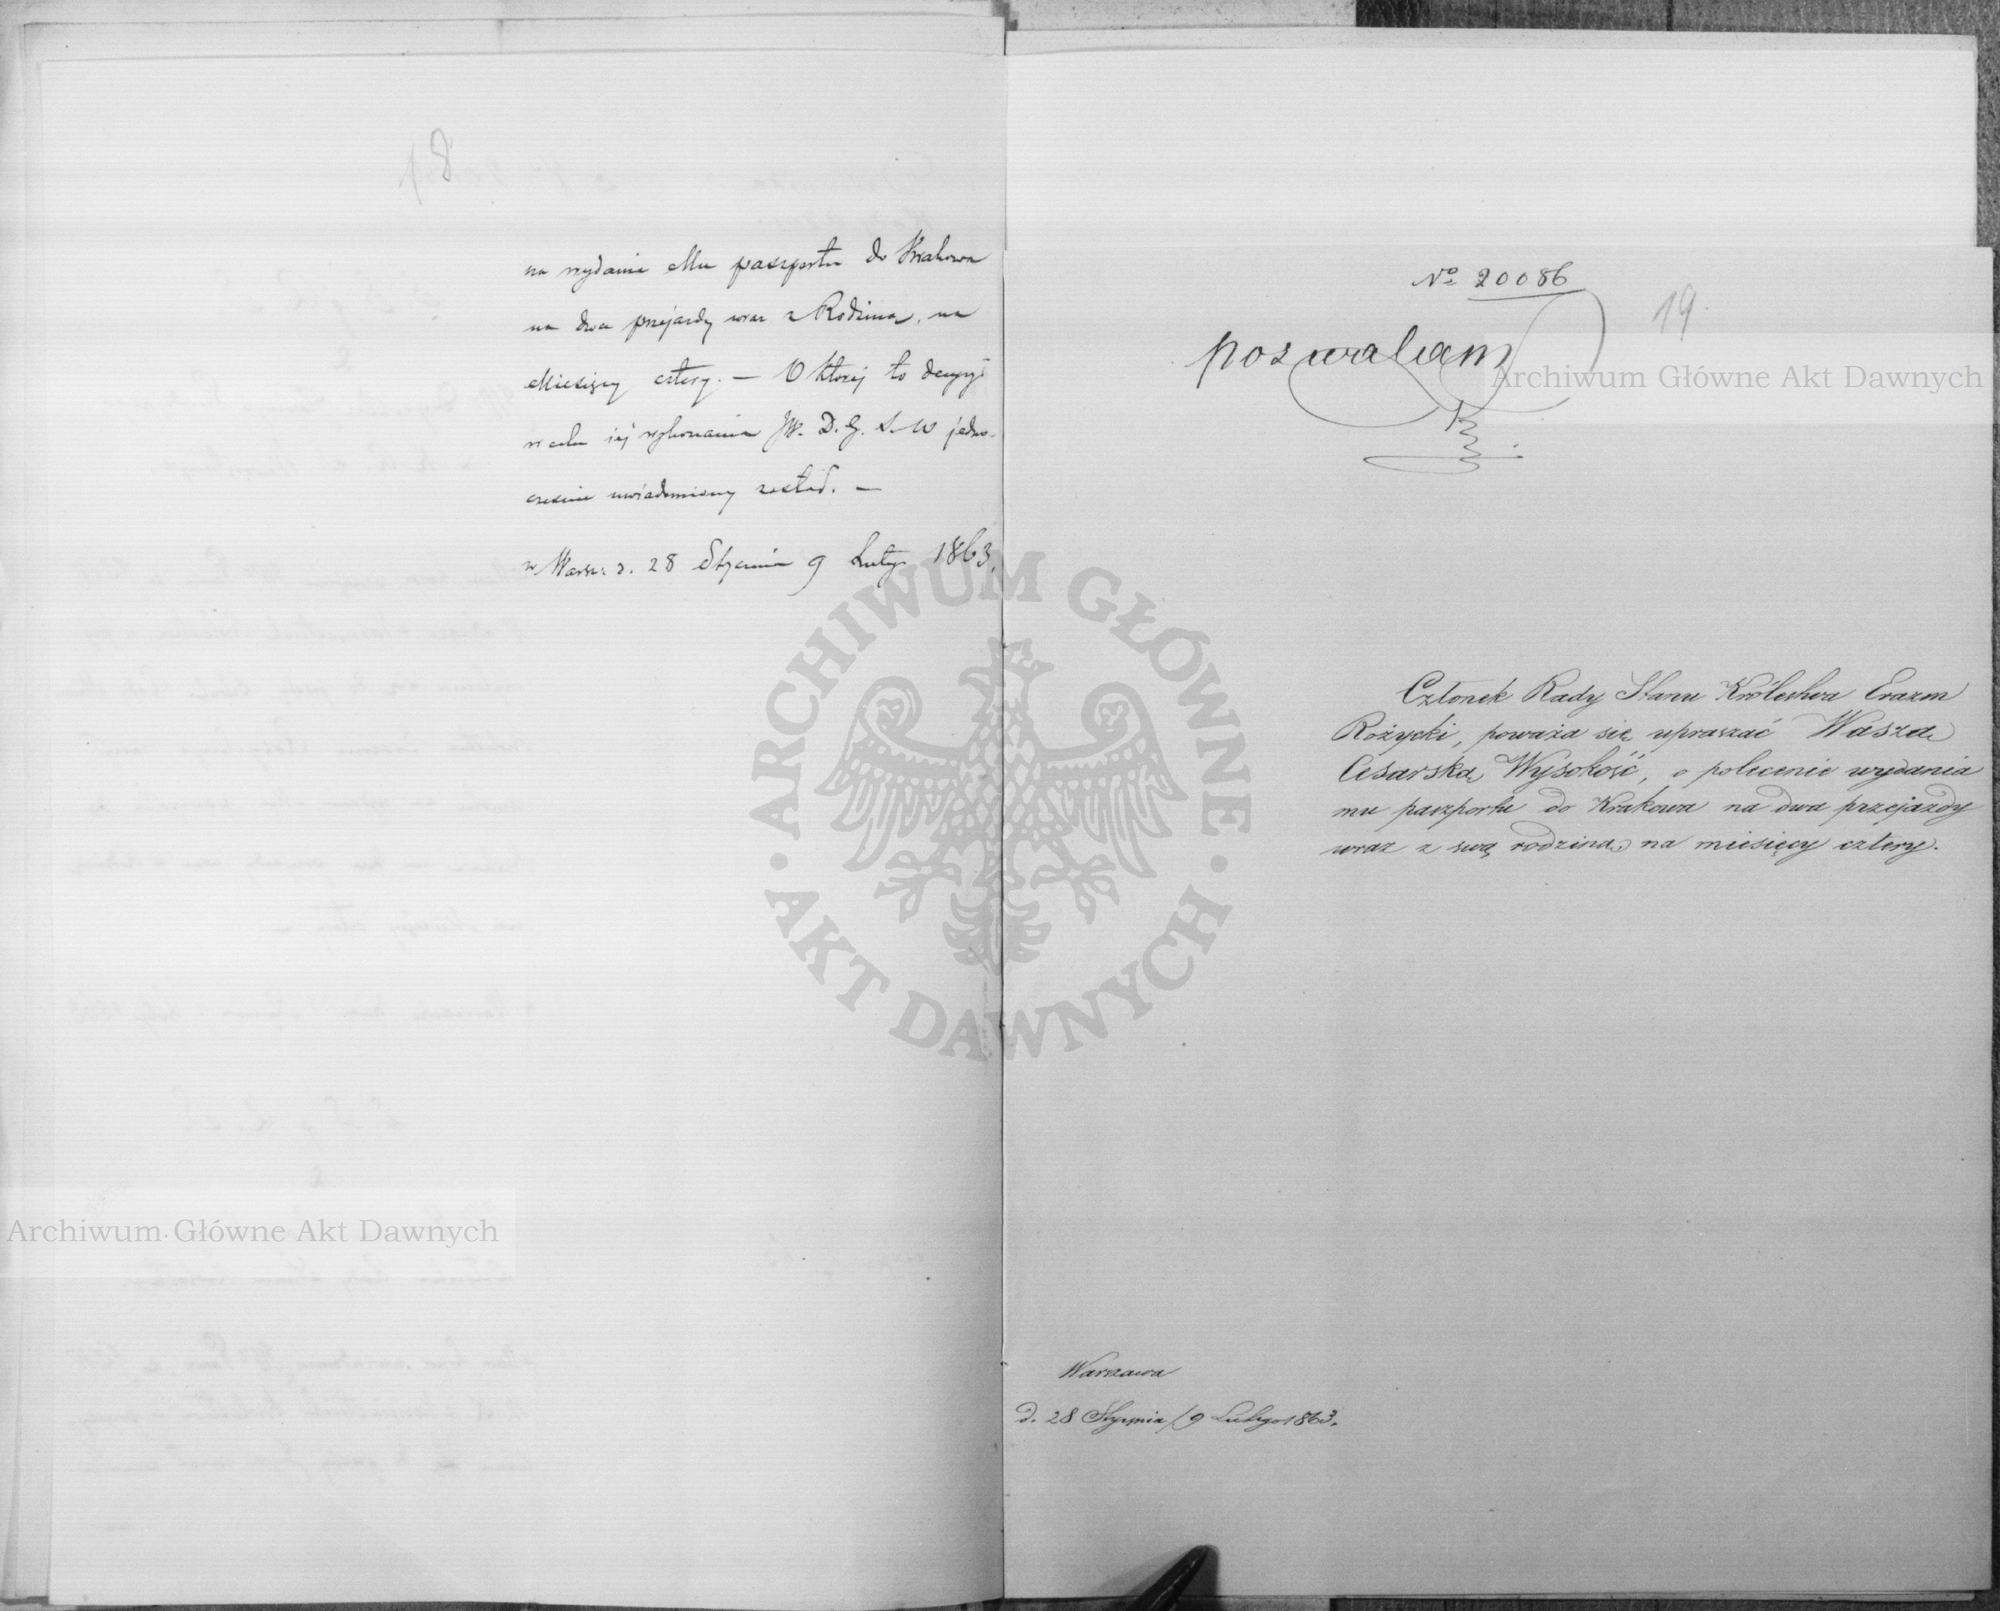 na wydanie Mu paszportu do Krakowa
na dwa przejazdy wraz z Rodziną, na
Miesięcy cztery. — O której to decyzji
w celu jej wykonania JW. D. G. S. W jedno-
cześnie uwiadomiony został. —
w Warsz: d. 28 Stycznia 9 Lutego 1863.
No 20086
19.
pozwalam
Członek Rady Stanu Królestwa Erazm
Rożycki, poważa się upraszać Waszą
Cesarską Wysokość, o polecenie wydania
mu paszportu do Krakowa na dwa przejazdy
wraz z swą rodziną, na miesięcy cztery.
Warszawa
d. 28 Stycznia / 9 Lutego 1863.
Archiwum Główne Akt Dawnych
Archiwum Główne Akt Dawnych
ARCHIWUM GŁÓWNE
AKT DAWNYCH